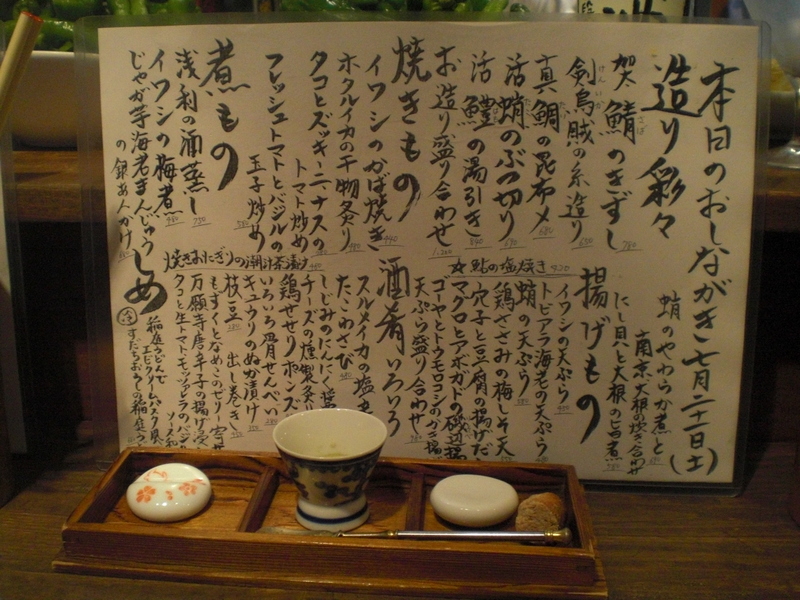 本日のおしながき七月二十一日(土)
造り彩々
賀茂鯖のきずし 780
剣烏賊の糸造り 670
真鯛の昆布〆 680
活蛸のぶつ切り 690
活鱧の湯引き 890
お造り盛り合わせ
焼きもの
イワシのかば焼き
ホタルイカの干物炙り
タコとズッキーニ、ナスの
トマト炒め
フレッシュトマトとバジルの
玉子炒め
煮もの
浅利の酒蒸し
イワシの梅煮
じゃが芋海老まんじゅう
の銀あんかけ
蛸のやわらか煮と
南京、大根の炊き合わせ
にし貝と大根の旨煮
揚げもの
イワシの天ぷら
トビアラ海老の天ぷら
蛸の天ぷら
鶏ささみの梅しそ天
穴子と豆腐の揚げだし
マグロとアボガドの磯辺揚
ゴーヤとトウモロコシのかき揚
天ぷら盛り合わせ
☆鮎の塩焼き 920
酒肴いろいろ
スルメイカの塩
たこわさび
しじみのにんにく
チーズの燻製
鶏せせりポンズ
いろいろ骨せんべい
キュウリのぬか漬け
枝豆 出し巻き
もずくとなめこのゼリー寄せ
万願寺唐辛子の揚げ
タコと生トマト、モッツァレラのバジル
焼きおにぎりの潮汁茶漬け
しめ
冷 稲庭うどんで
すだちおろしの稲庭